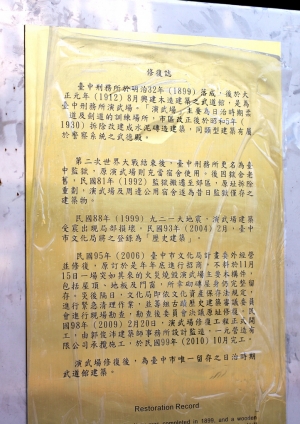 修復誌
臺中刑務所於明治32年(1899)落成，後於大
正元年(1912)8月興建木造建築之武道館，是為
臺中刑務所演武場。「演武場」主要為日治時期柔
道及劍道的訓練場所，市區改正後於昭和5年(
1930)拆除改建成水泥磚造建築，同類型建築有屬
於警察系統之武德殿。
第二次世界大戰結束後，臺中刑務所更名為臺
中監獄，原演武場則充當宿舍使用。後因獄舍老
舊，民國81年(1992)監獄搬遷至郊區，原址拆除
重劃，演武場及周邊公用宿舍遂為昔日監獄僅存之
建築物。
民國88年(1999)九二一大地震，演武場建築
受震出現局部損壞。民國93年(2004)2月，臺中
市文化局將之登錄為「歷史建築」。
民國95年(2006)臺中市文化局計畫委外經營
並修復，原訂於是年年底進行招商，不料於11月
15日一場突如其來的大火
包括屋頂、地板及門窗，所幸砌磚屋身仍完整留
存。災後隔日，文化局即依文化資產保存法規定，
進行緊急清理作業，並
會進行現場勘查，勘查後委員會決議原址修復。民國
98年(2009)2月20日，演武場修復工程正式開
工，由郭俊沛建築師事務所設計監造，一凡營造有
限公司承攬施工，於民國99年(2010)10月完工。
演武場修復後，為臺中市唯一留存之日治時期
武道館建築。
Restoration Record
completed in 1899, and a wooden